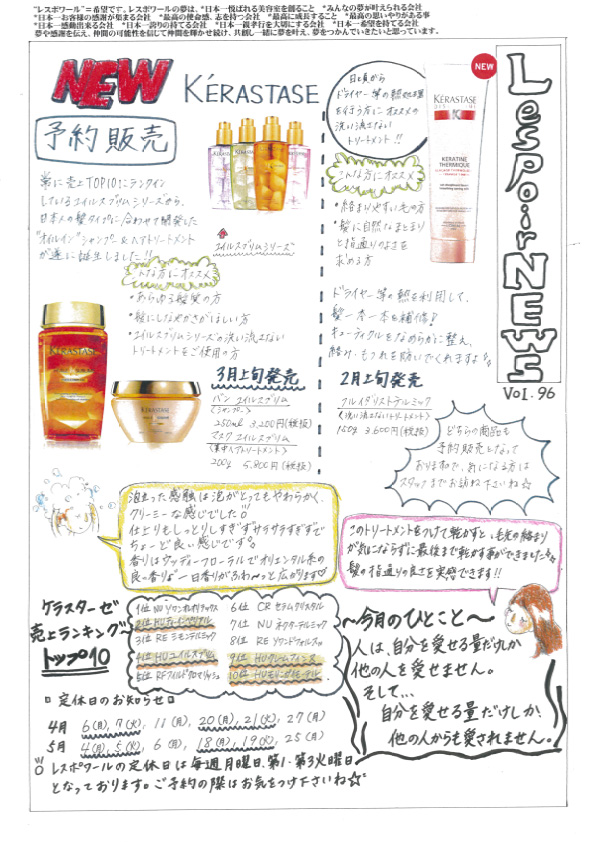 "レスポワール"=希望です。レスポワールの夢は、*日本一悦ばれる美容室を創ること *みんなの夢が叶えられる会社
*日本一お客様の感謝が集まる会社 *最高の使命感、志を持つ会社 *最高に成長すること *最高の思いやりがある事
*日本一感動出来る会社 *日本一誇りの持てる会社 *日本一親孝行を大切にする会社 *日本一希望を持てる会社
夢や感謝を伝え、仲間の可能性を信じて仲間を輝かせ続け、共創し一緒に夢を叶え、夢をつかんでいきたいと思っています。
Lespoir NEWS
Vol. 96
NEW
KÉRASTASE
予約販売
常に売上TOP10にランクイン
しているユイルスブリムシリーズから、
日本人の髪タイプに合わせて開発した
"オイルイン"シャンプー&ヘアトリートメント
が遂に誕生しました!!
ユイルスブリムシリーズ
こんな方にオススメ
・あらゆる髪質の方
・髪にしなやかさがほしい方
・ユイルスブリムシリーズの洗い流さない
トリートメントをご使用の方
KÉRASTASE
KÉRASTASE
3月上旬発売
バン ユイルスブリム
〈シャンプー〉
250ml 3,200円(税抜)
マスク ユイルスブリム
〈集中ヘアトリートメント〉
200g 5,800円(税抜)
日頃から
ドライヤー等の熱処理
を行う方にオススメの
洗い流さない
トリートメント!!
NEW
KÉRASTASE
KERATINE
THERMIQUE
こんな方にオススメ
・絡まりやすい毛の方
・髪に自然なまとまり
と指通りのよさを
求める方
ドライヤー等の熱を利用して、
髪一本一本を補修!
キューティクルをなめらかに整え、
絡み・もつれを防いでくれますよ
2月上旬発売
〈洗い流さないトリートメント〉
150g 3,600円(税抜)
どちらの商品も
予約販売となって
おりますので、気になる方は
スタッフまでお訪ね下さいね☆
泡立った感触は泡がとってもやわらかく、
クリーミーな感じでした
仕上りもしっとりしすぎずサラサラすぎずで
ちょーど良い感じです。
香りはウッディーフローラルでオリエンタル系の
良い香りが一日香りがふわ〜っと広がります♡
このトリートメントをつけて乾かすと、毛先の絡まり
が気にならずに最後まで乾かす事ができました
髪の指通りの良さを実感できます!!
ケラスターゼ
売上ランキング
トップ10
1位 NU
2位 HU
3位 RE
4位 HU ユイルスブリム
5位 RF
6位 CR セラムクリスタル
7位 NU ネクターテルミック
8位 RE
9位 HU
10位 HU
〜今月のひとこと〜
人は、自分を愛せる量だけしか
他の人を愛せません。
そして...
自分を愛せる量だけしか、
他の人からも愛されません。
定休日のお知らせ
4月 6(月), 7(火), 11(月), 20(月), 21(火), 27(月)
5月 4(月), 5(火), 6(水), 18(月), 19(火), 25(月)
レスポワールの定休日は毎週月曜日、第1・第3火曜日
となっております。ご予約の際はお気をつけ下さいね☆